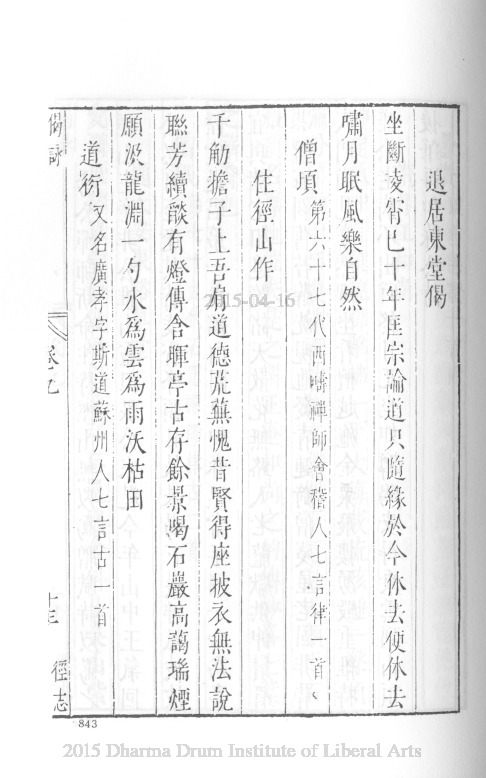 退居東堂偈
坐斷凌霄已十年匡宗論道只隨緣於今休去便休去
嘯月眠風樂自然
僧頊第六十七代西疇禪師會稽人七言律一首
住徑山作
千觔擔子上吾肩道德荒蕪愧昔賢得座披衣無法說
聯芳續燄有燈傳含暉亭古存餘景喝石巖高藹瑞煙
願汲龍淵一勺水為雲為雨沃枯田
道衍又名廣孝字斯道蘇州人七言古一首
偈詠 卷九 十三 徑志
843
2015-04-16
2015 Dharma Drum Institute of Liberal Arts